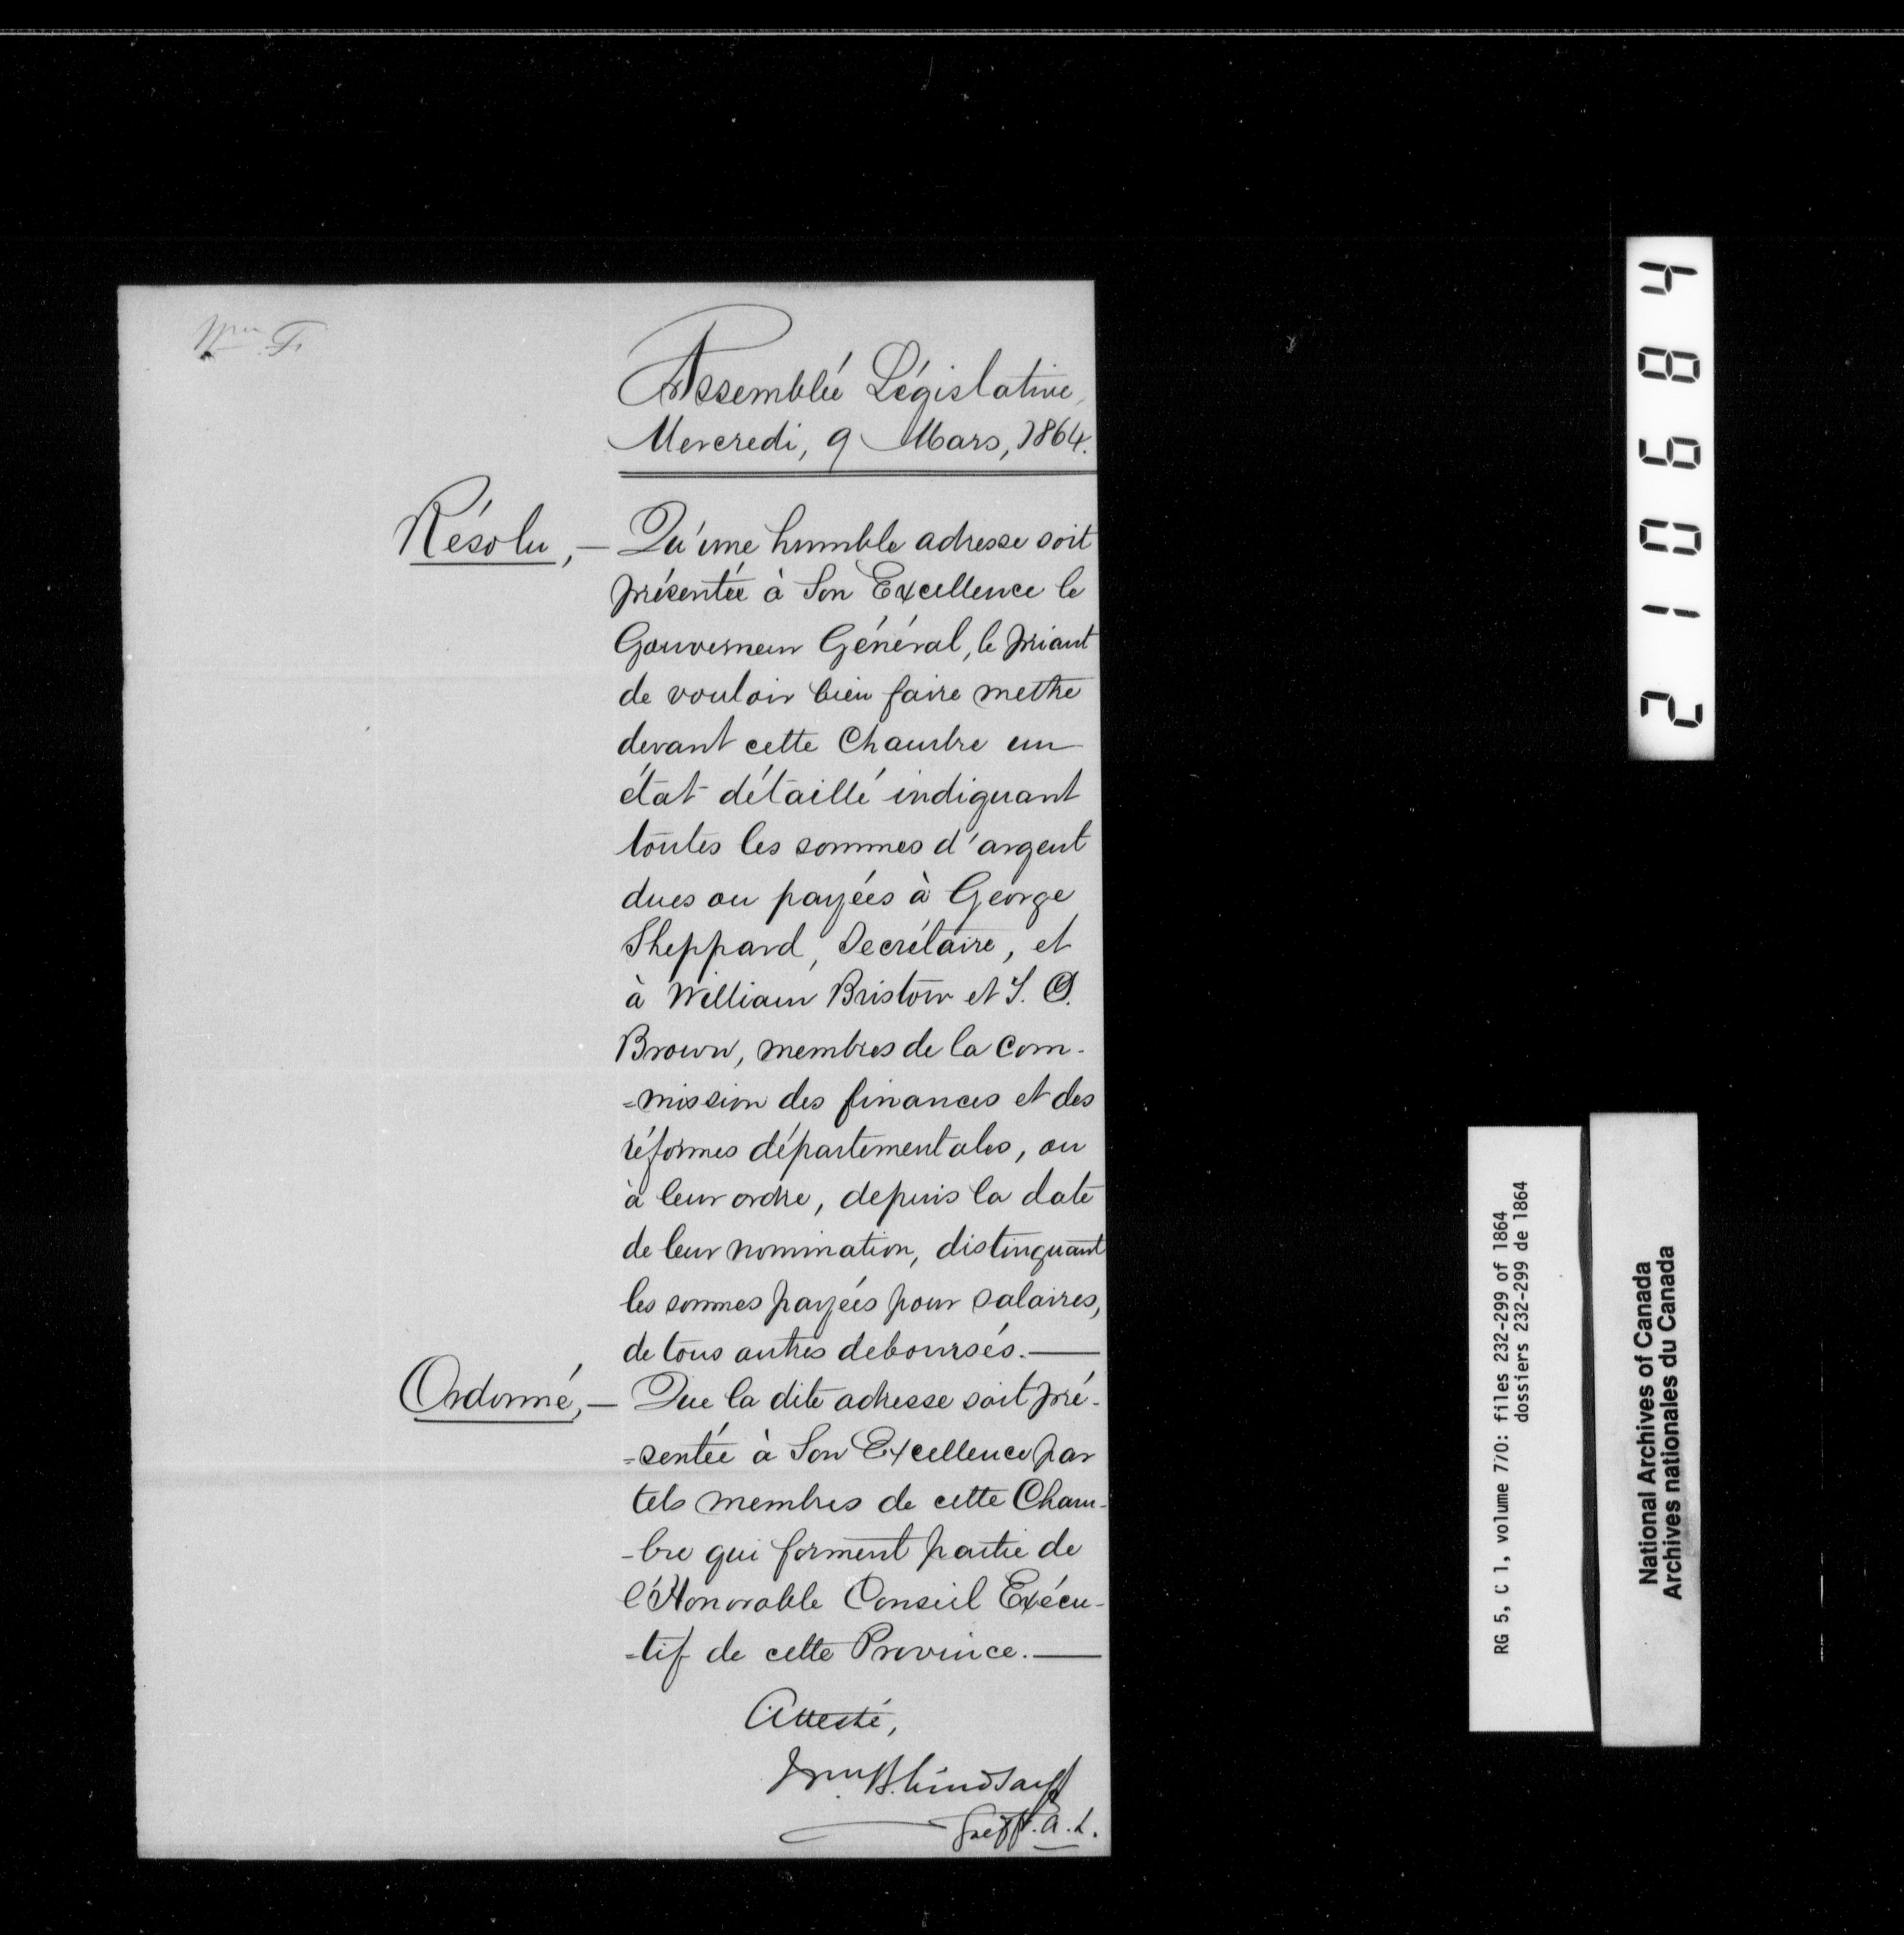 Assemblée Législative,
Mercredi, 9 Mars, 1864.
Résolu,— Qu'une humble adresse soit
présentée à Son Excellence le
Gouverneur Général, le priant
de vouloir bien faire mettre
devant cette Chambre un
état détaillé indiquant
toutes les sommes d'argent
dues ou payées à George
Sheppard, Secrétaire, et
à William Bristow et T. S.
Brown, membres de la com-
=mission des finances et des
réformes départementales, ou
à leur ordre, depuis la date
de leur nomination, distinguant
les sommes payées pour salaires,
de tous autres deboursés.—
Ordonné,— Que la dite adresse soit pré-
=sentée à Son Excellence par
tels membres de cette Cham-
-bre qui forment partie de
l'Honorable Conseil Exécu-
=tif de cette Province.—
Attesté,
Wm. B. Lindsay
Greff. A. L.
210684
RG 5, C 1, volume 770: files 232-299 of 1864
dossiers 232-299 de 1864
National Archives of Canada
Archives nationales du Canada